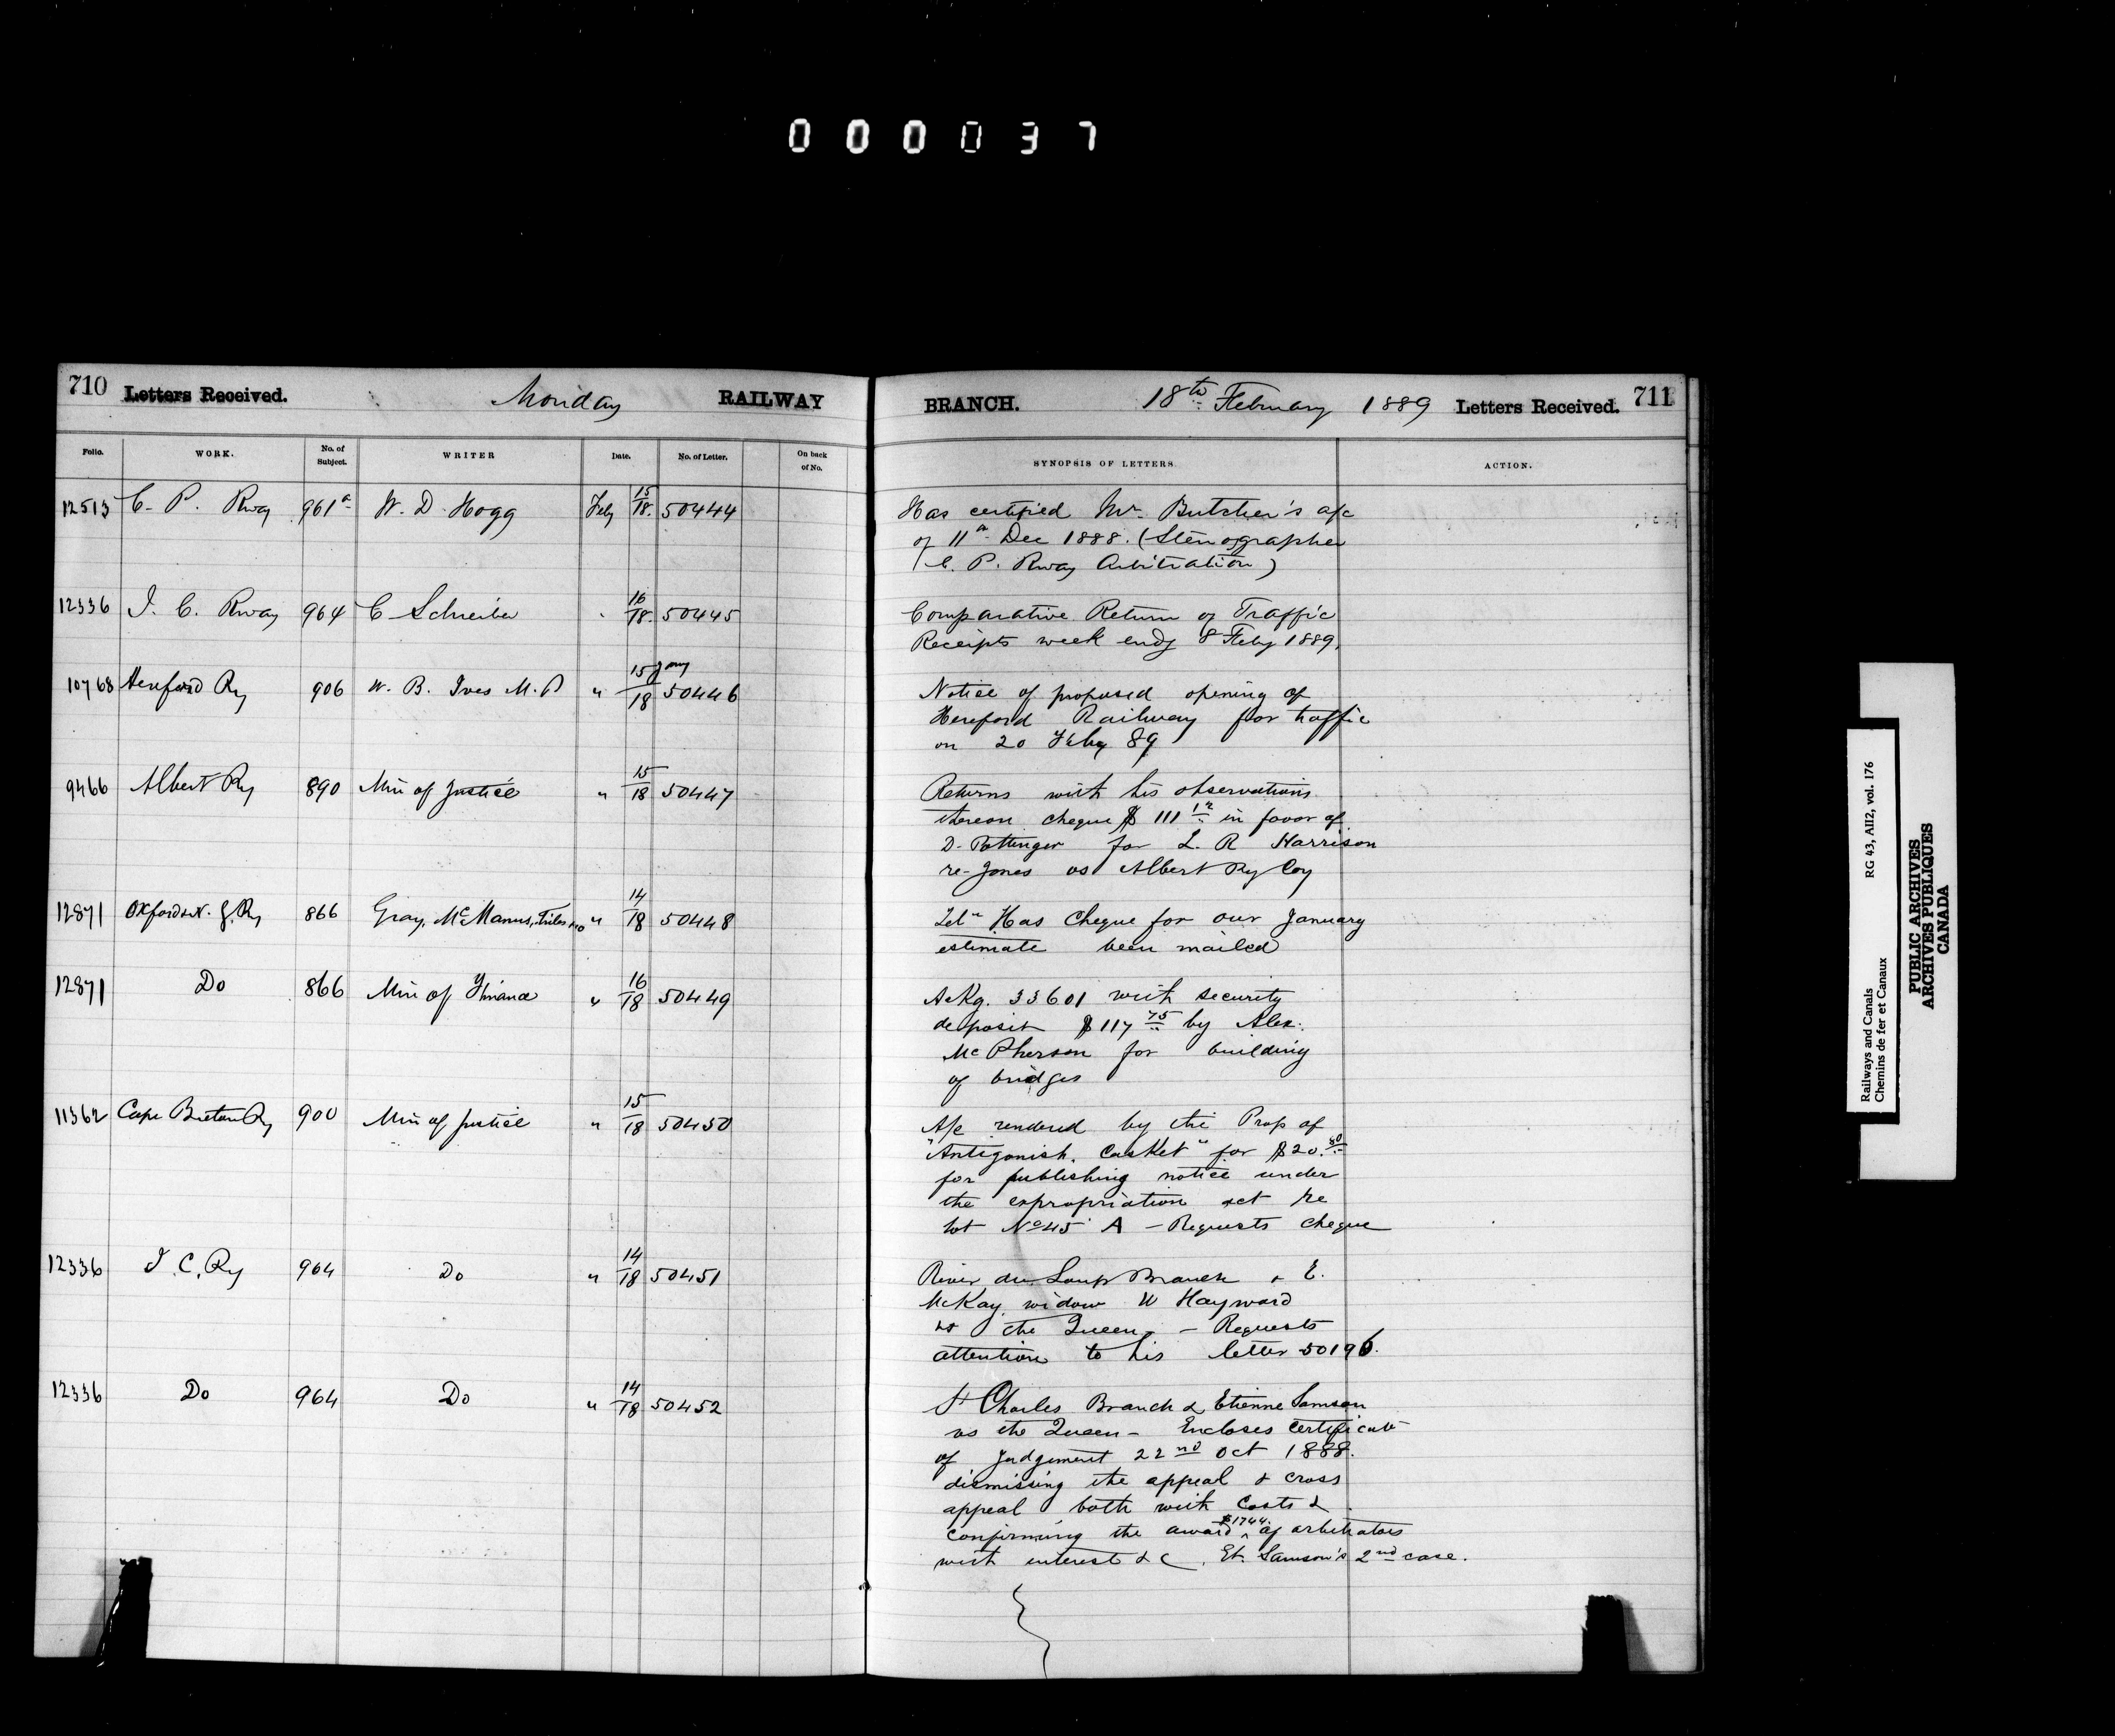 000037
710 Letters Received. Monday RAILWAY
BRANCH. 18th February 1889 Letters Received. 711
Folio. WORK. No. of Subject. WRITER Date. No. of Letter. On back of No.
SYNOPSIS OF LETTERS. ACTION.
12513 C. P. Rway 961a W. D. Hogg Feby 15/18. 50444
Has certified Mr. Butcher's a/c
of 11th Dec 1888. (Stenographer
C. P. Rway Arbitration)
12336 I. C. Rway 964 C Schreiber " 16/18. 50445
Comparative Return of Traffic
Receipts week endg 8 Feby 1889.
10768 Hereford Ry 906 W. B. Ives M. P " 15 Jany/18 50446
Notice of proposed opening of
Hereford Railway for traffic
on 20 Feby 89
9466 Albert Ry 890 Min of Justice " 15/18 50447
Returns with his observations
thereon cheque $ 111 12 in favor of
D. Pottinger for L. R Harrison
re Jones vs Albert Ry Coy
12871 Oxford & N. G. Ry 866 Gray, McManus, " 14/18 50448
Tel" Has Cheque for our January
estimate been mailed
12871 Do 866 Min of Finance " 16/18 50449
Ackg. 33601 with security
deposit $117 75 by Alex.
McPherson for building
of bridges
11362 Cape Breton Ry 900 Min of Justice " 15/18 50450
A/c rendered by the Prop of
"Antigonish. Casket" for $20.80
for publishing notice under
the expropriation act re
lot No 45 A - Requests cheque
12336 I. C. Ry 964 Do " 14/18 50451
River du Loup Branch & E.
McKay, widow W Hayward
vs the Queen. - Requests
attention to his letter 50196.
12336 Do 964 Do " 14/18 50452
St Charles Branch & Etienne Samson
vs the Queen - Encloses certificate
of judgement 22nd Oct 1888.
dismissing the appeal & cross
appeal both with costs &
confirming the award ^ $1744. of arbitrators
with interest &c. Et. Samson's 2nd case.
Railways and Canals RG 43, AII2, vol. 176
Chemins de fer et Canaux
PUBLIC ARCHIVES
ARCHIVES PUBLIQUES
CANADA